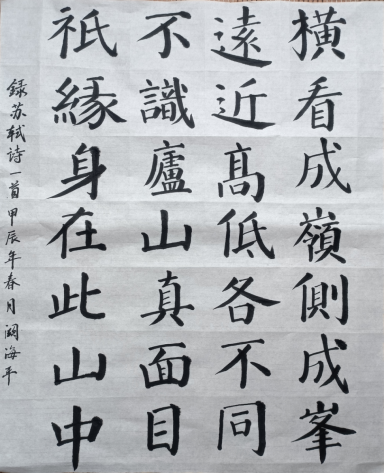 橫看成嶺側成峯
遠近髙低各不同
不識廬山真面目
祇緣身在此山中
録苏轼诗一首甲辰年春月阚海平